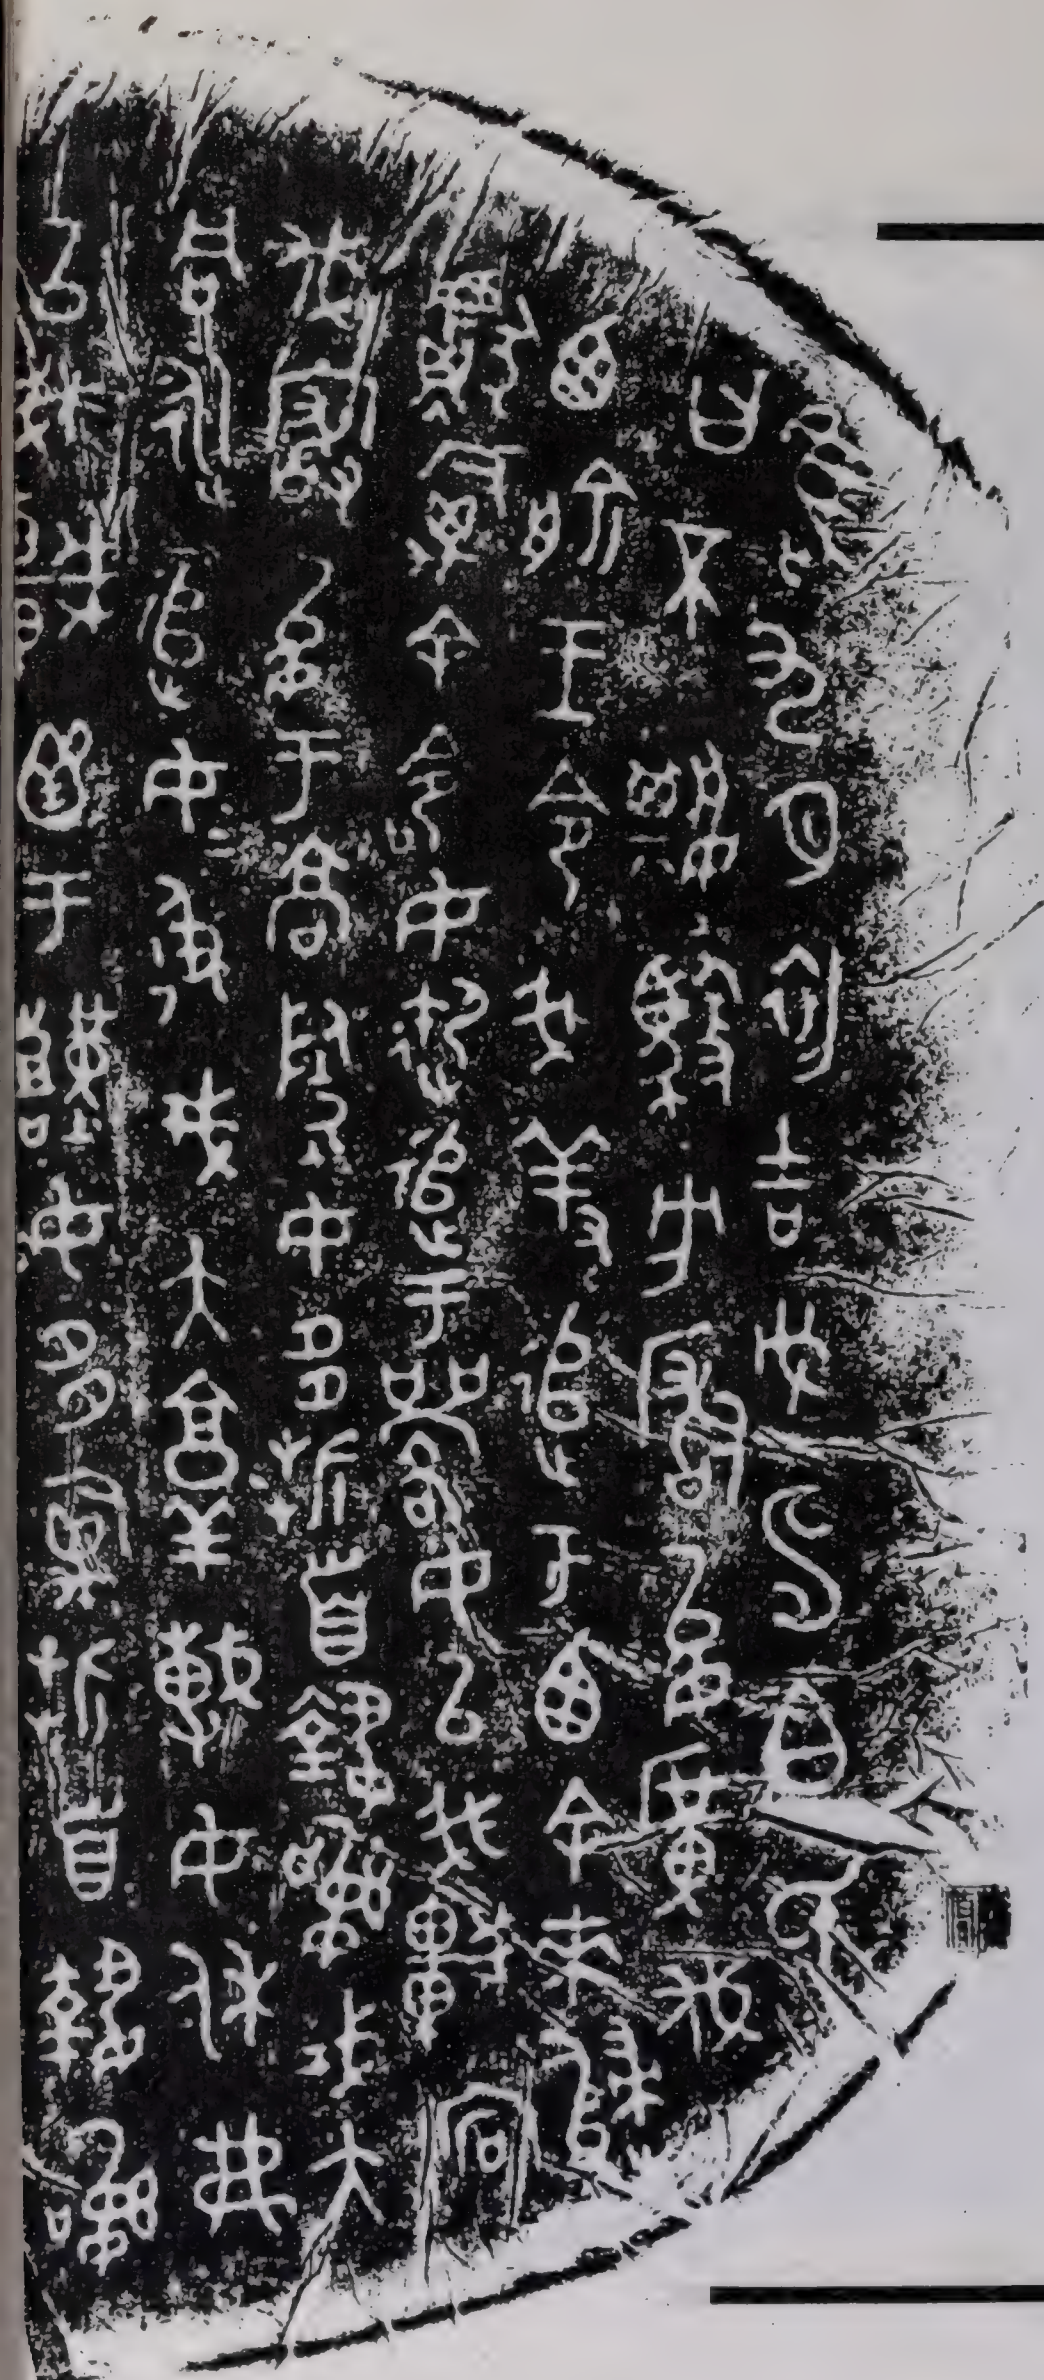 唯九月初吉戊申白氏
曰不𡢁馭方厰允廣伐
西俞王令我羞追于西余來歸
獻禽余命女御追于䂮女以我車宕
伐厰允于高陶女多折首執訊戎大
同永追女女彶戎大敦女休弗
以我車圅于艱女多禽折首執訊